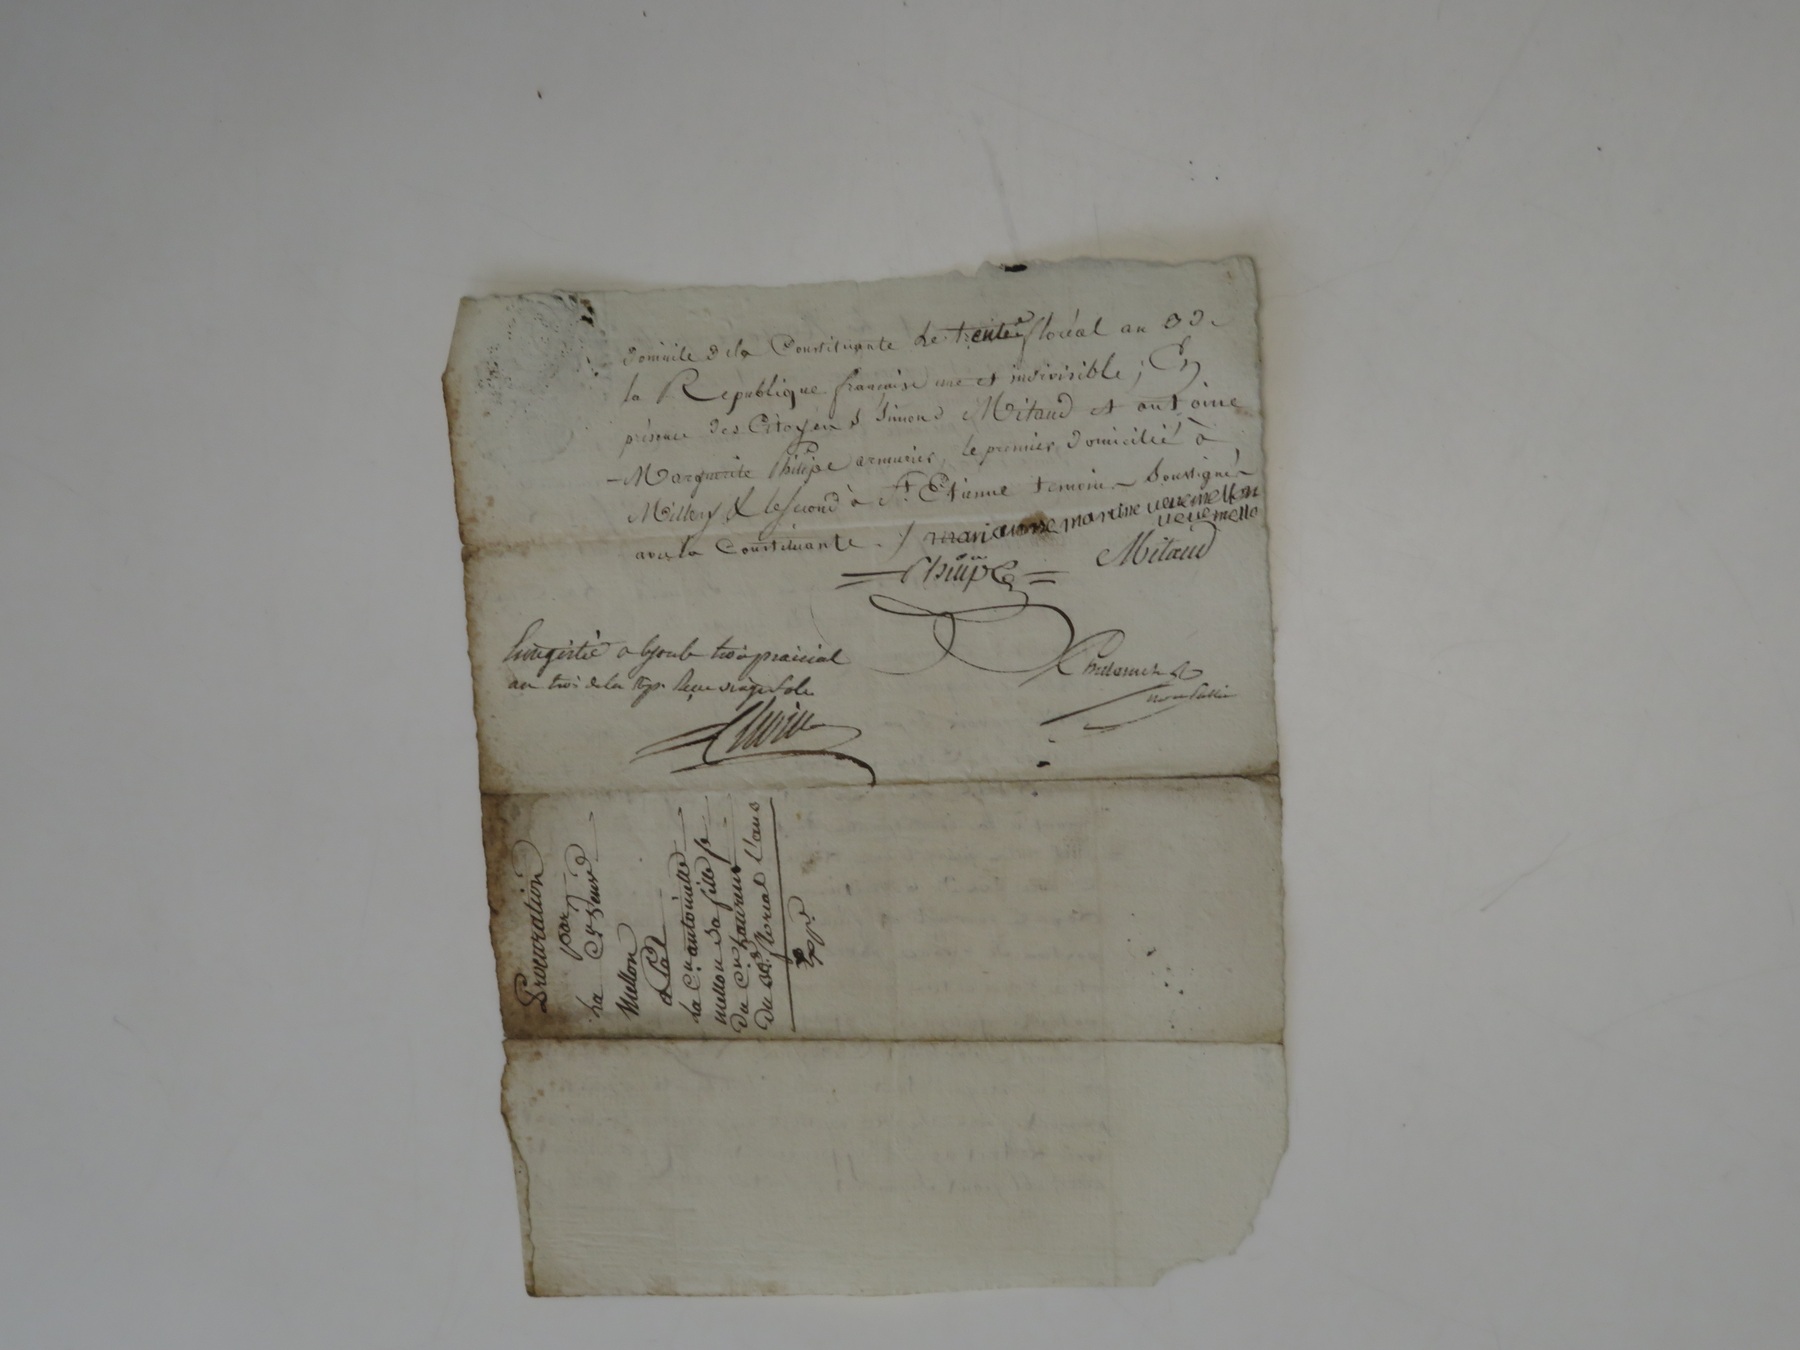 domicile de la Constituante le trente floréal an 3 de
la Republique française une et indivisible ; En
présence des Citoyens Simond Mitaud et antoine
Marguerite Philipe armurier, le premier domicilié à
Millery & le second à St. Etienne temoins soussignés
avec la Constituante. / marianne martine veuve mellon
veuve mello
Philipe Mitaud
Enregistré a trois prairial
an trois de la rep. Reçu vingt sols
Procuration
par
la Cne veuve
Mellon
a la
la Cne antoinette
mellon sa fille fe
du Cn
du 30 floreal l'an 3